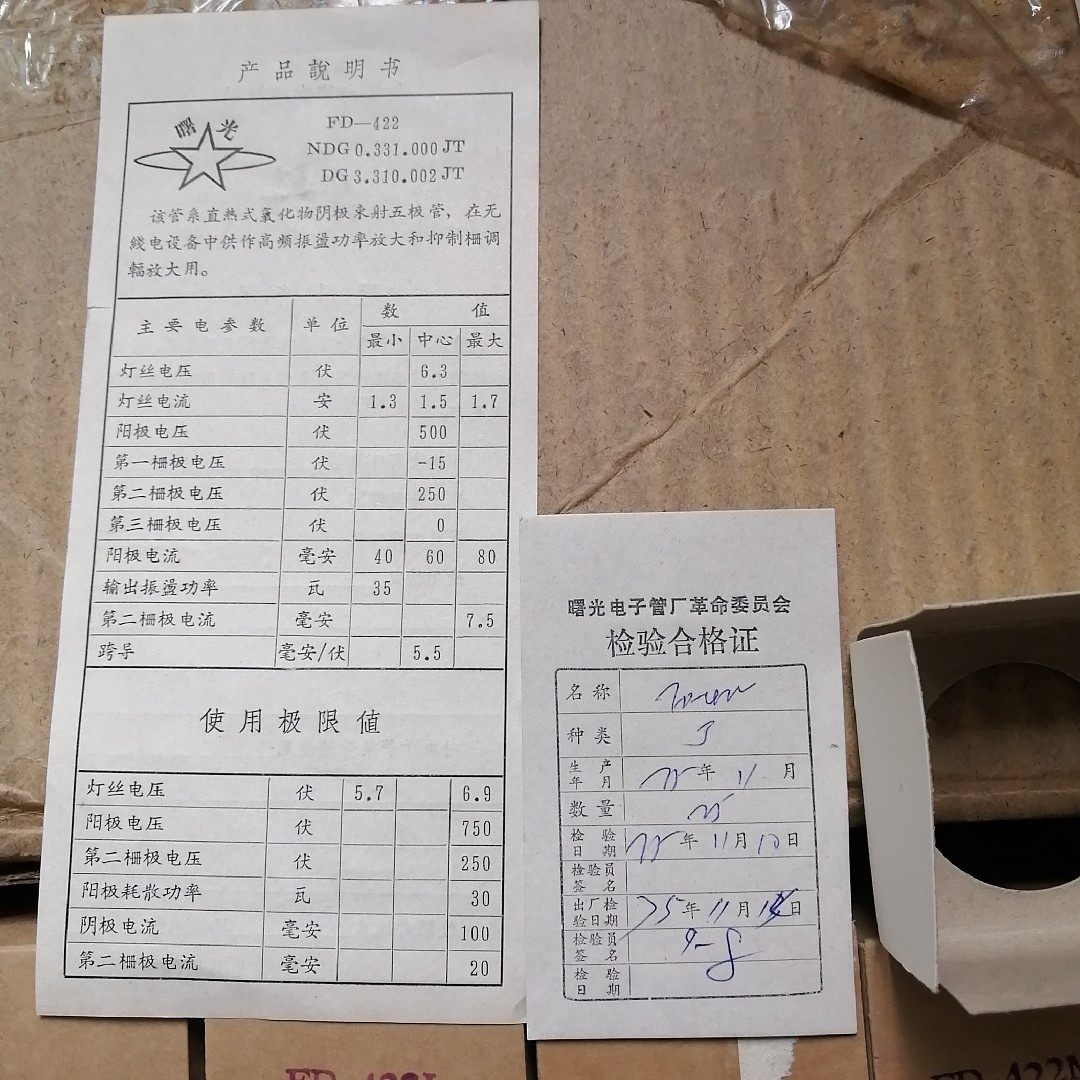 产品說明书
曙光
FD—422
NDG0.331.000JT
DG3.310.002JT
该管系直热式氧化物阴极束射五极管，在无
綫电设备中供作高频振盪功率放大和抑制栅调
幅放大用。
主要电参数 单位 数 值
最小 中心 最大
灯丝电压 伏 6.3
灯丝电流 安 1.3 1.5 1.7
阳极电压 伏 500
第一栅极电压 伏 -15
第二栅极电压 伏 250
第三栅极电压 伏 0
阳极电流 毫安 40 60 80
输出振盪功率 瓦 35
第二栅极电流 毫安 7.5
跨导 毫安/伏 5.5
使用极限值
灯丝电压 伏 5.7 6.9
阳极电压 伏 750
第二栅极电压 伏 250
阳极耗散功率 瓦 30
阴极电流 毫安 100
第二栅极电流 毫安 20
曙光电子管厂革命委员会
检验合格证
名称
种类
生产
年月 年 11 月
数量
检验
日期 年 11 月 10 日
检验员
签名
出厂检
验日期 75 年 11 月 日
检验员
签名
检验
日期
FD-422
FD-422